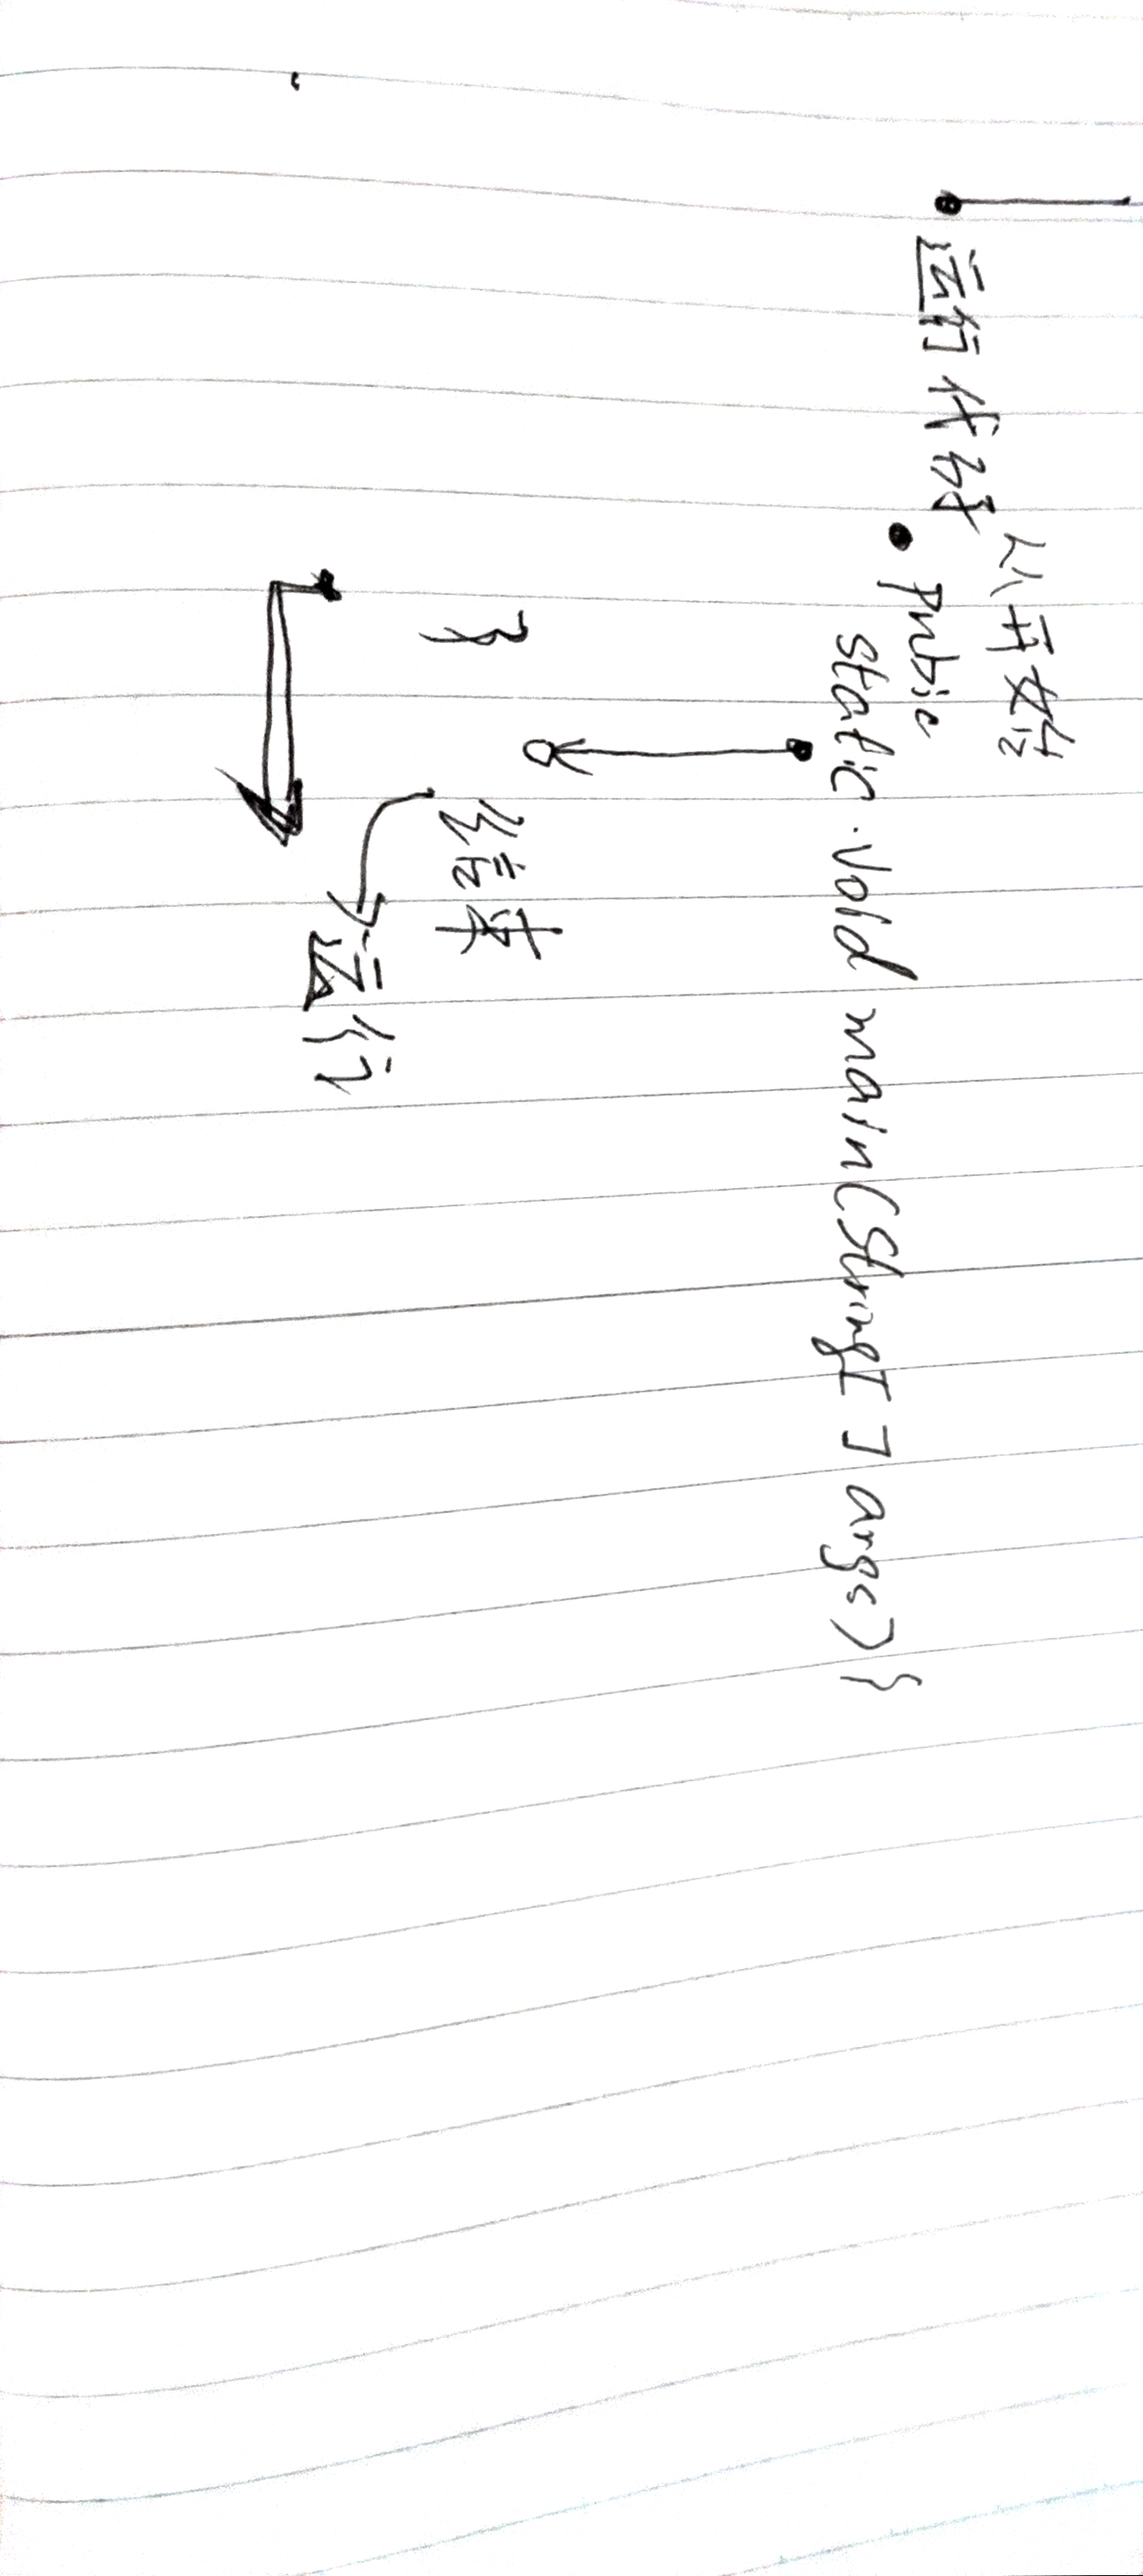 从开始
运行代码
pubic
static void main(String[] args){
} 结束
运行